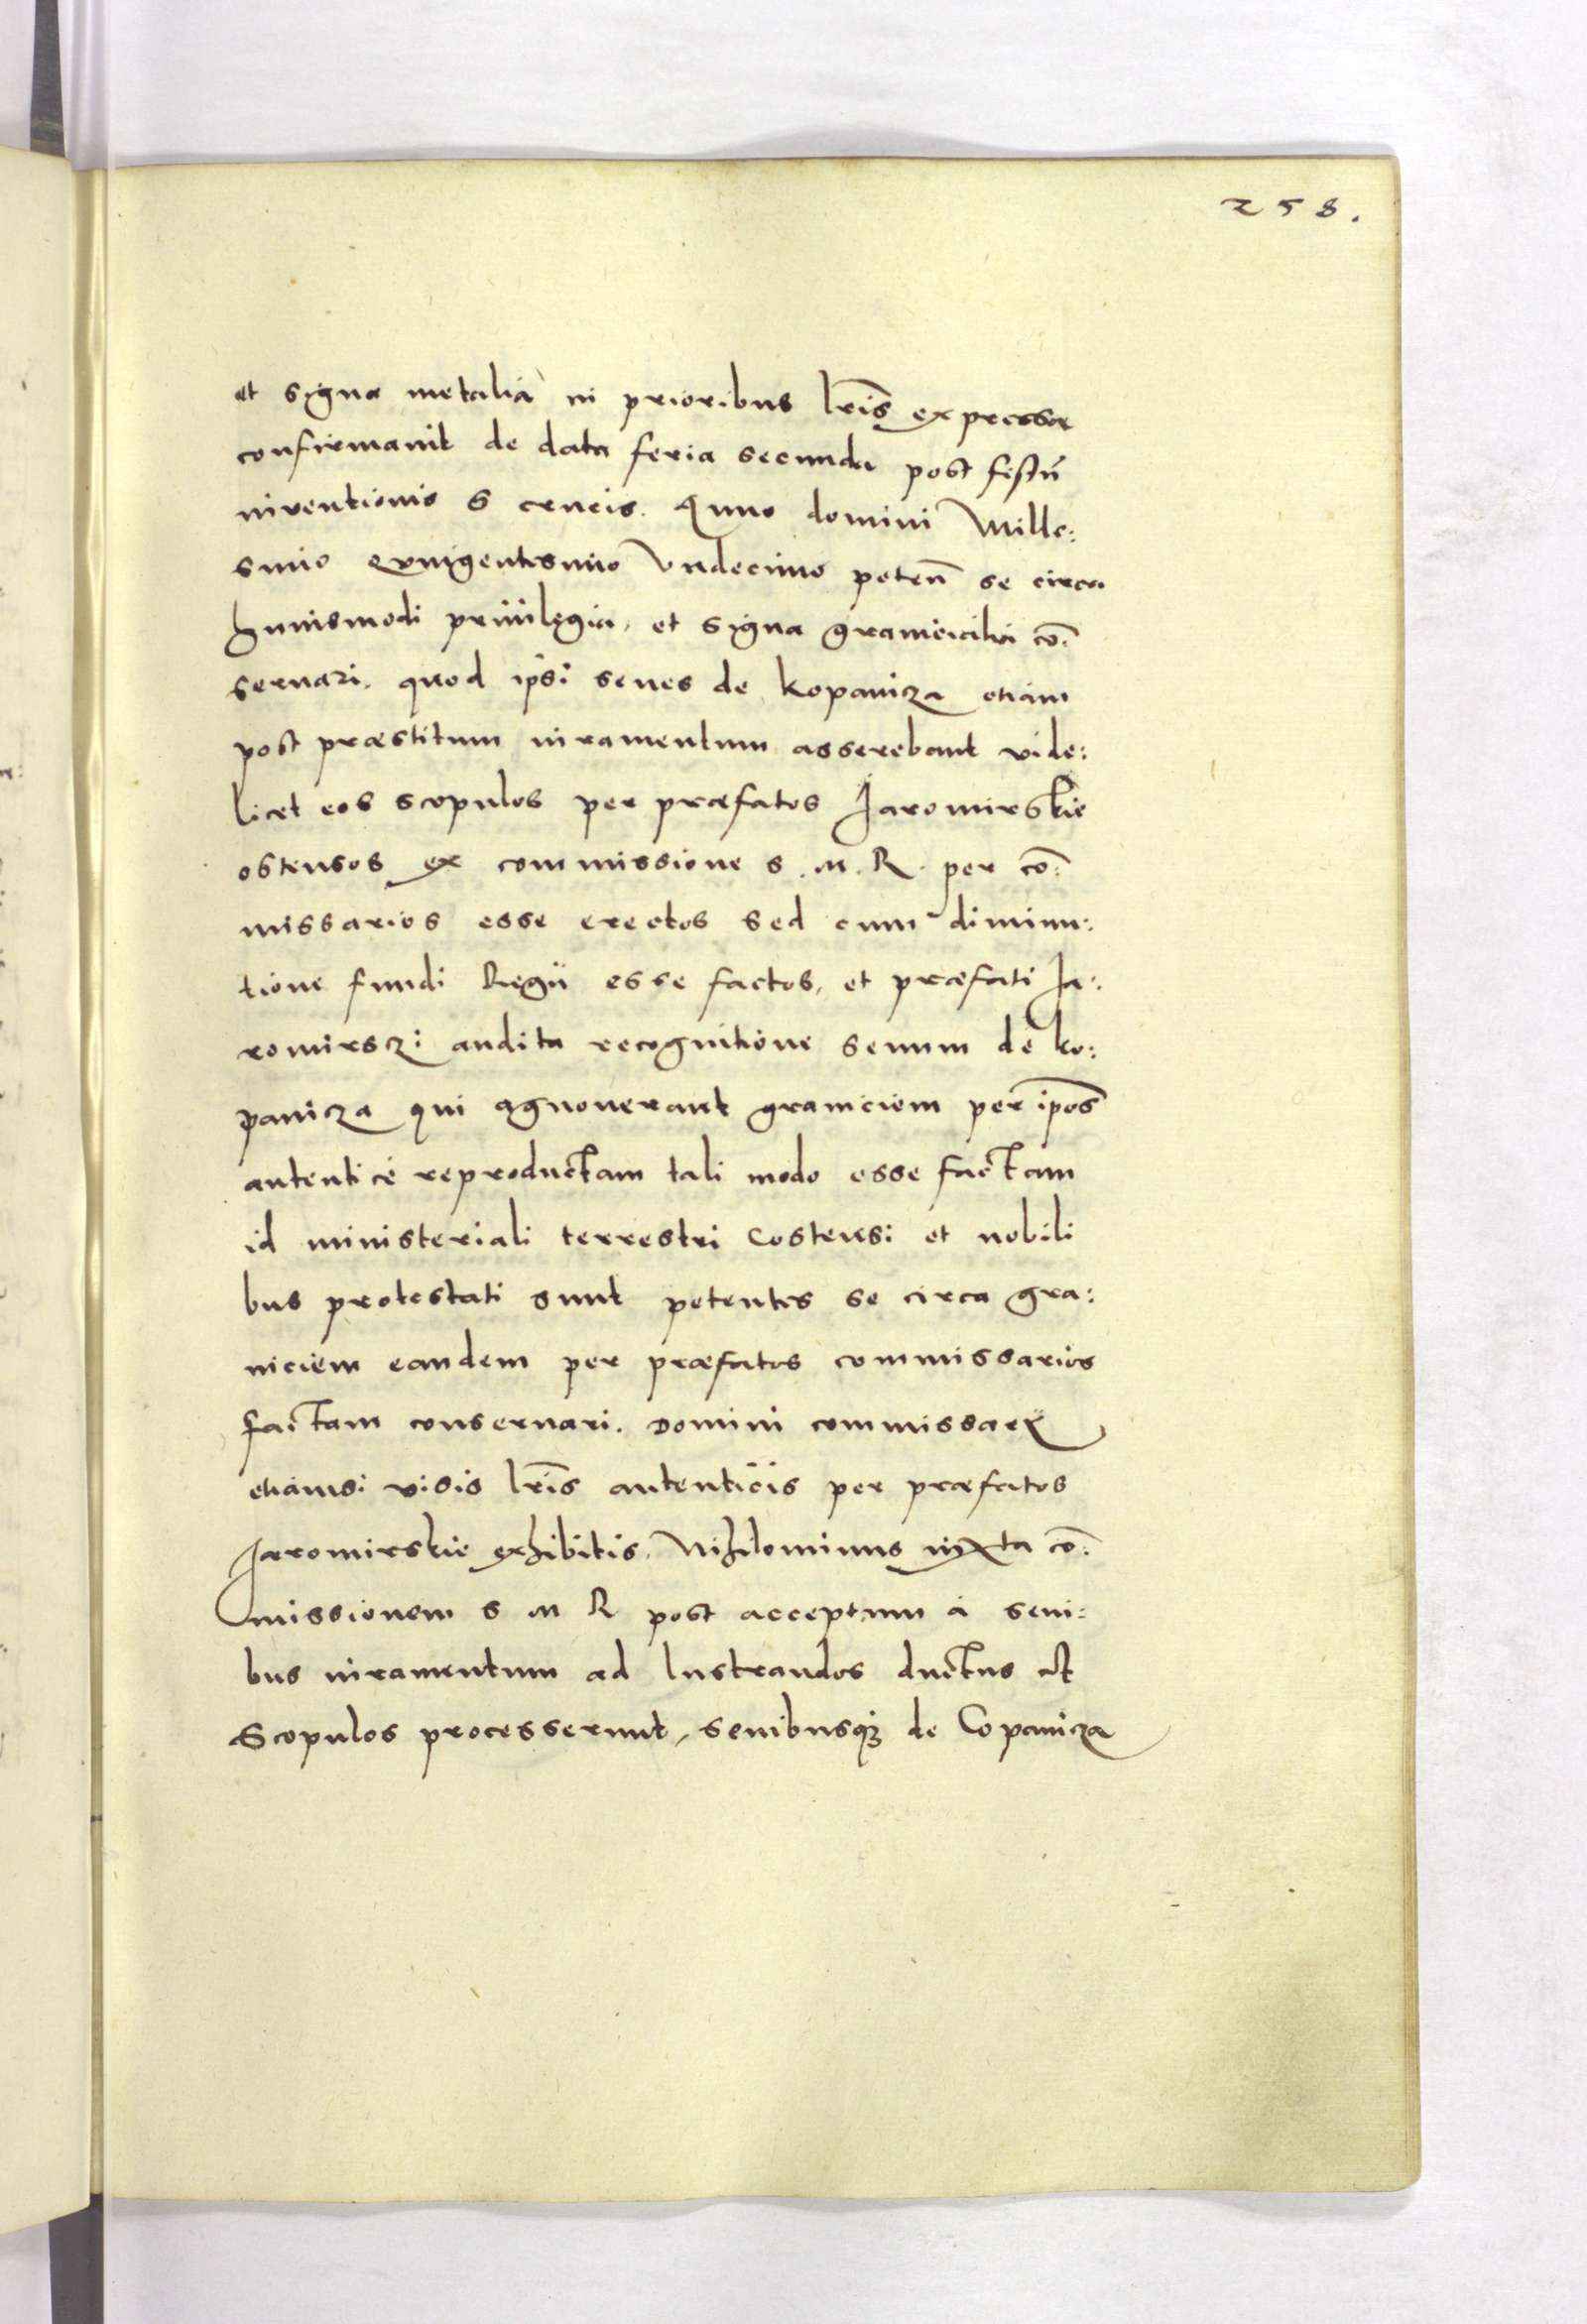 258.
et signa metalia in prioribus lris̃ expressa
confirmauit de data feria secunda post festũ
inventionis S crucis. Anno domini Mille:
simo Quingentesimo Vndecimo peteñ se circa
huiusmodi priuilegia, et signa granicialia cõ:
seruari. quod ipsi senes de Kopanicza etiam
post præstitum iuramentum asserebant vide:
licet eos scopulos per præfatos Jaromirskie
ostensos ex commissione S. M. R. per cõ:
missarios esse erectos sed cum diminu:
tione fundi Regii esse factos, et præfati Ja:
romirsczi audita recognitione senum de Ko:
panicza qui agnouerant graniciem per ipõs
autenticè reproductam tali modo esse factam
id ministeriali terrestri Costensi et nobili
bus protestati sunt petentes se circa gra:
niciem eandem per præfatos commissarios
factam conseruari. Domini commissarii
etiamsi visis lris̃ autenticis per præfatos
Jaromirskie exhibitis. Nihilominus iuxta cõ:
missionem S M R post acceptum à seni:
bus iuramentum ad lustrandos ductus et
Scopulos processerunt, senibusq3 de Copanicza